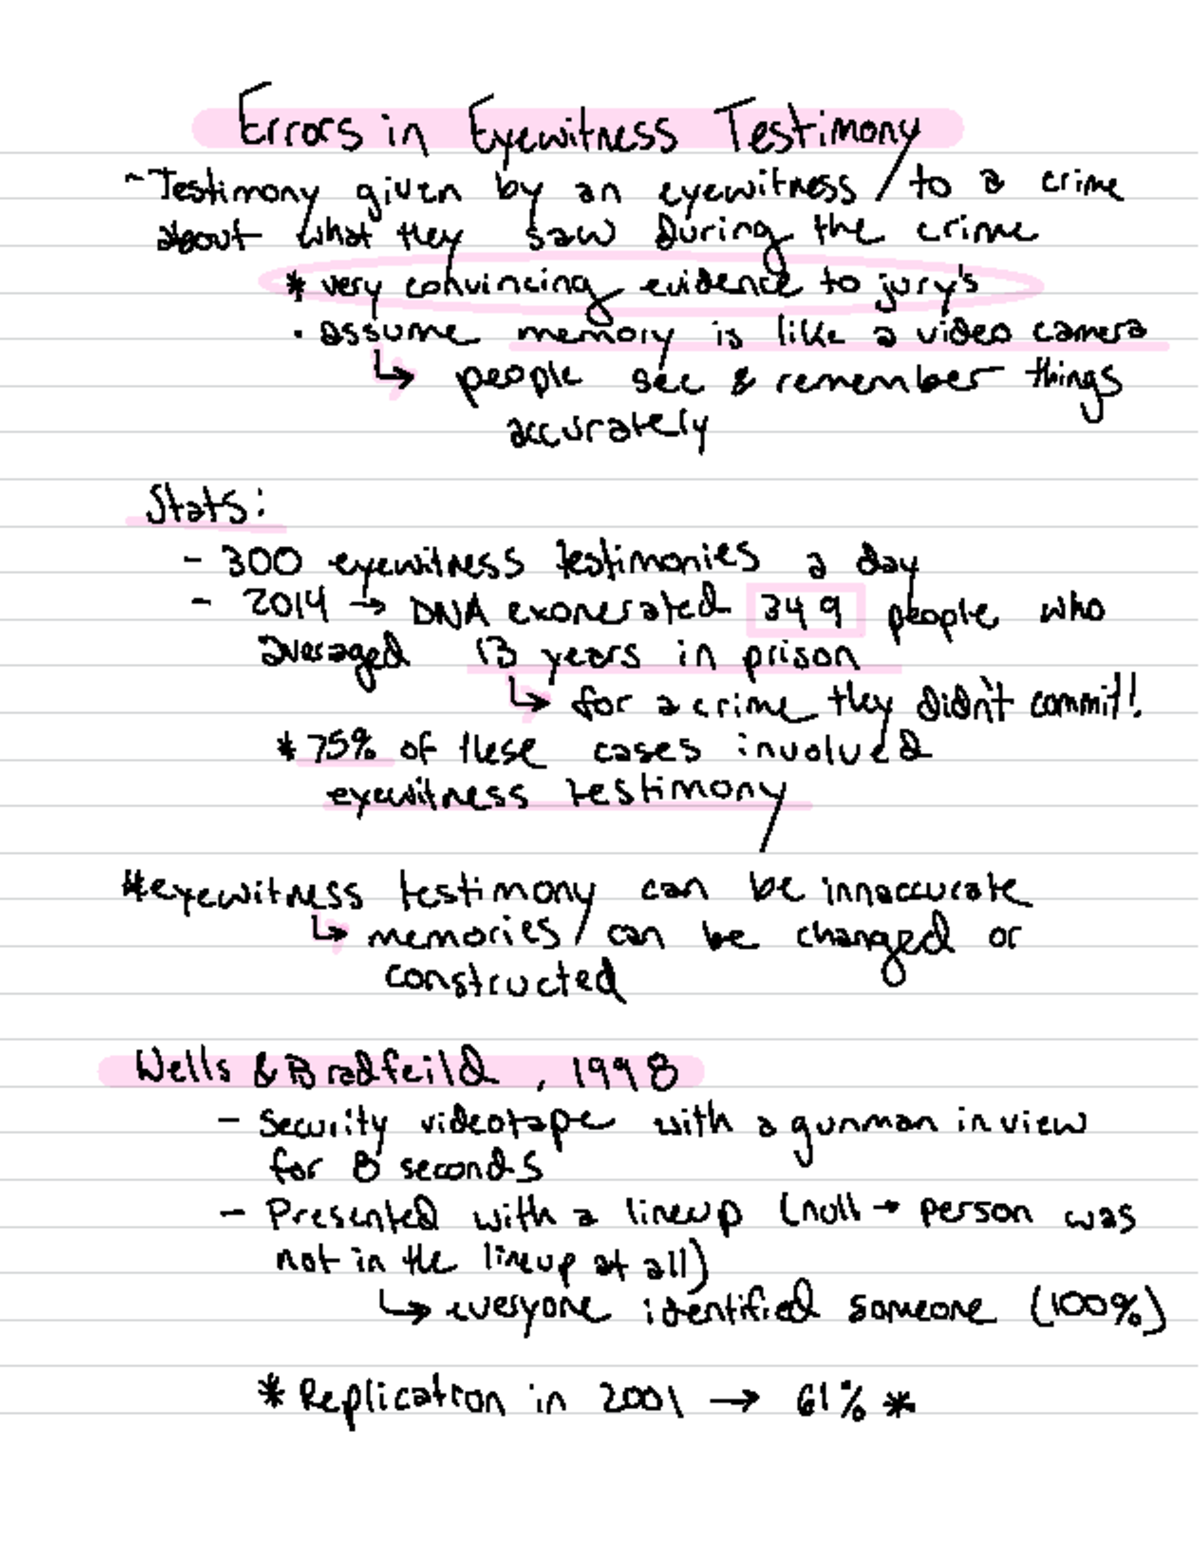 Errors in Eyewitness Testimony
- Testimony given by an eyewitness to a crime
about what they saw during the crime
* very convincing evidence to jury's
• assume memory is like a video camera
↳ people see & remember things
accurately
Stats:
- 300 eyewitness testimonies a day
- 2014 → DNA exonerated 349 people who
averaged 13 years in prison
↳ for a crime they didn't commit!
* 75% of these cases involved
eyewitness testimony
* eyewitness testimony can be innaccurate
↳ memories can be changed or
constructed
Wells & Bradfeild, 1998
- Security videotape with a gunman in view
for 8 seconds
- Presented with a lineup (null → person was
not in the lineup at all)
↳ everyone identified someone (100%)
* Replication in 2001 → 61% *